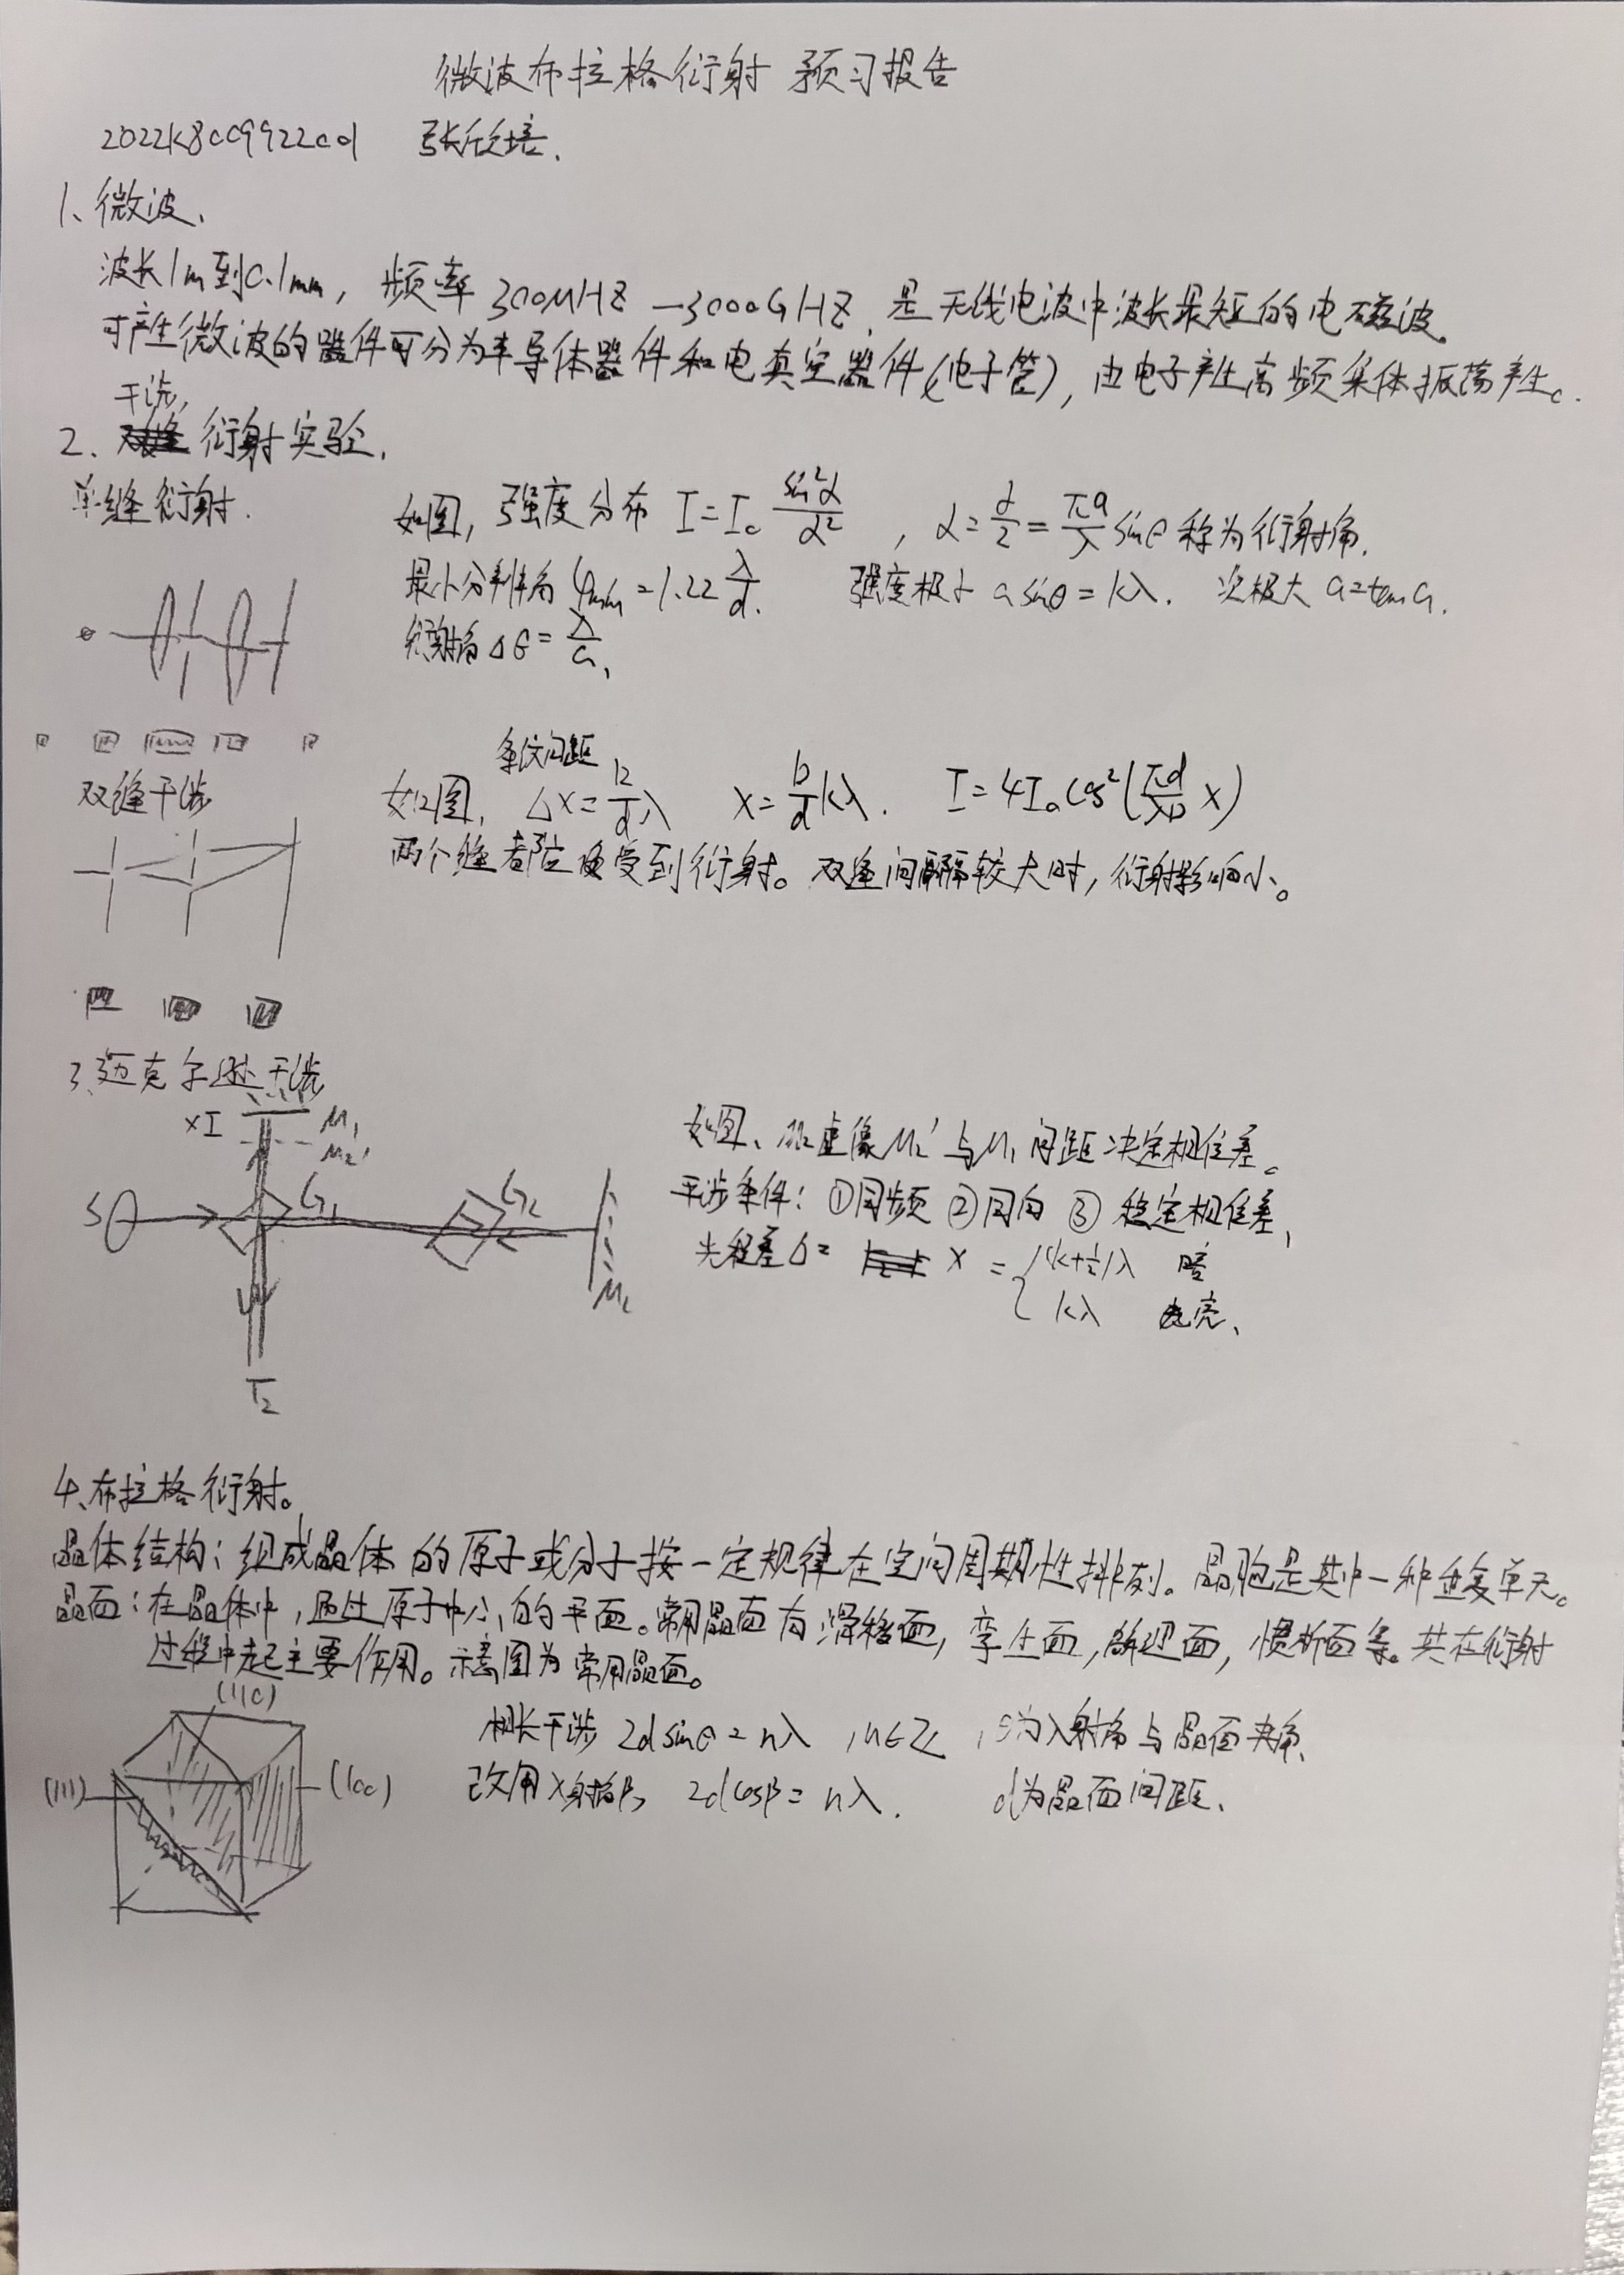 微波布拉格衍射 预习报告
2022K8009922001 张
1、微波、
波长1m到0.1mm，频率300MHZ—3000GHZ，是无线电波中波长最短的电磁波。
可产生微波的器件可分为半导体器件和电真空器件(电子管)，由电子产生高频集体振荡产生。
干涉，
2、衍射实验．
单缝衍射．
如图，强度分布 I=I₀ sin²α/α²，α=δ/2=πa/λ sinθ 称为衍射角．
最小分辨角 φmin=1.22 λ/d． 强度极小 a sinθ=kλ． 次极大 a=tan a．
衍射角 Δθ=λ/a、
双缝干涉
条纹间距
如图， Δx=D/d λ x=D/d kλ． I=4I₀cos²(πd/λD x)
两个缝都应受到衍射。双缝间隔较大时，衍射影响小。
3、迈克尔逊干涉
×I M₁
M₂'
S G₁ G₂
M₂
T₂
如图、M₂虚像M₂'与M₁间距决定相位差。
干涉条件：①同频 ②同向 ③ 稳定相位差、
光程差Δ= x = { (k+½)λ 暗
kλ 亮、
4、布拉格衍射。
晶体结构：组成晶体的原子或分子按一定规律在空间周期性排列。晶胞是其中一种重复单元。
晶面：在晶体中，通过原子中心的平面。常用晶面有滑移面，孪生面，解理面，惯析面等。其在衍射
过程中起主要作用。示意图为常用晶面。
(110)
(111) (100)
相长干涉 2d sinθ=nλ ，n∈Z ，θ为入射角与晶面夹角、
改用入射角β， 2dcosβ=nλ． d为晶面间距、